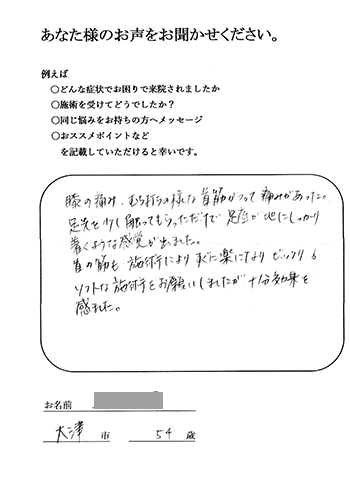 あなた様のお声をお聞かせください。
例えば
○どんな症状でお困りで来院されましたか
○施術を受けてどうでしたか？
○同じ悩みをお持ちの方へメッセージ
○おススメポイントなど
を記載していただけると幸いです。
膝の痛み、むち打ちの様な首筋がつって痛みがあった。
足先を少し触ってもらっただけで足底が地にしっかり
着くような感覚が出ました。
首の筋も施術によりすぐに楽になりビックリ。
ソフトな施術をお願いしましたが十分効果を
感じれた。
お名前
大津市 54歳